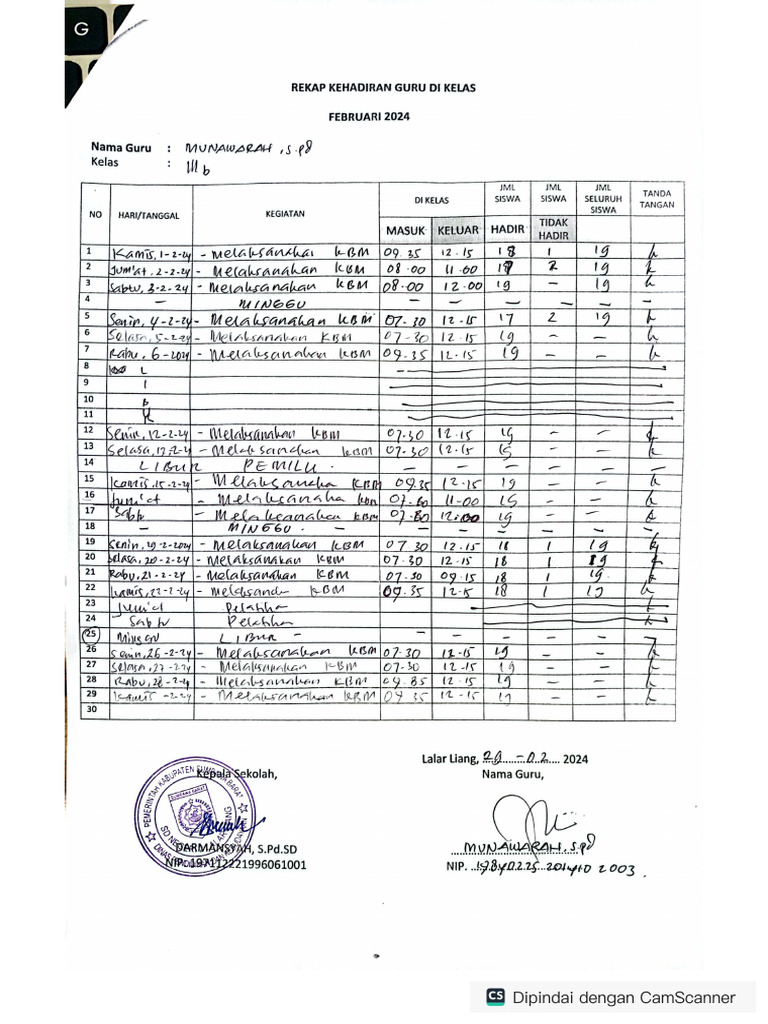 G
REKAP KEHADIRAN GURU DI KELAS
FEBRUARI 2024
Nama Guru : MUNAWARAH, S.Pd
Kelas : III b
NO HARI/TANGGAL KEGIATAN DI KELAS JML SISWA JML SISWA JML SELURUH SISWA TANDA TANGAN
MASUK KELUAR HADIR TIDAK HADIR
1 Kamis, 1-2-24 - Melaksanakan KBM 09.35 12.15 18 1 19
2 Jum'at, 2-2-24 - Melaksanakan KBM 08.00 11.00 17 2 19
3 Sabtu, 3-2-24 - Melaksanakan KBM 08.00 12.00 19 - 19
4 - MINGGU - - - - - -
5 Senin, 4-2-24 - Melaksanakan KBM 07.30 12.15 17 2 19
6 Selasa, 5-2-24 - Melaksanakan KBM 07-30 12.15 19 - -
7 Rabu, 6-2024 - Melaksanakan KBM 09.35 12.15 19 - -
8 L
9 I
10 b
11
12 Senin, 12-2-24 - Melaksanakan KBM 07.30 12.15 19 - -
13 Selasa, 13-2-24 - Melaksanakan KBM 07.30 12.15 - -
14 LIBUR PEMILU. - - - - - -
15 Kamis, 15-2-24 - Melaksanaka KBM 09.35 12.15 19 - -
16 Jum'at - Melaksanaka KBM 11-00 - -
17 Sabtu - Melaksanakan KBM 12.00 19 - -
18 - MINGGU. - - - - - - -
19 Senin, 19-2-2024 - Melaksanakan KBM 07.30 12.15 18 1 19
20 Selasa, 20-2-24 - Melaksanakan KBM 07.30 12.15 18 1 19
21 Rabu, 21-2-24 - Melaksanakan KBM 07.30 09.15 18 1 19.
22 Kamis, 22-2-24 - KBM 09.35 18 1 19
23 Jum'at Pelatiha
24 Sabtu Pelatiha
25 Minggu LIBUR - - - - -
26 Senin, 26-2-24 - Melaksanakan KBM 07.30 12-15 19 - -
27 Selasa, 27-2-24 - Melaksanakan KBM 07-30 12-15 19 - -
28 Rabu, 28-2-24 - Melaksanakan KBM 12.15 19 - -
29 Kamis -2-24 - Melaksanakan KBM 09.35 12-15 19 - -
30
Lalar Liang, 29 - 02 2024
Kepala Sekolah,
Nama Guru,
PEMERINTAH KABUPATEN SUMBAWA BARAT
SUMBAWA BARAT
DARMANSYAH, S.Pd.SD
NIP. 197112221996061001
MUNAWARAH, S.Pd
NIP. 19840225 201410 2003.
CS Dipindai dengan CamScanner